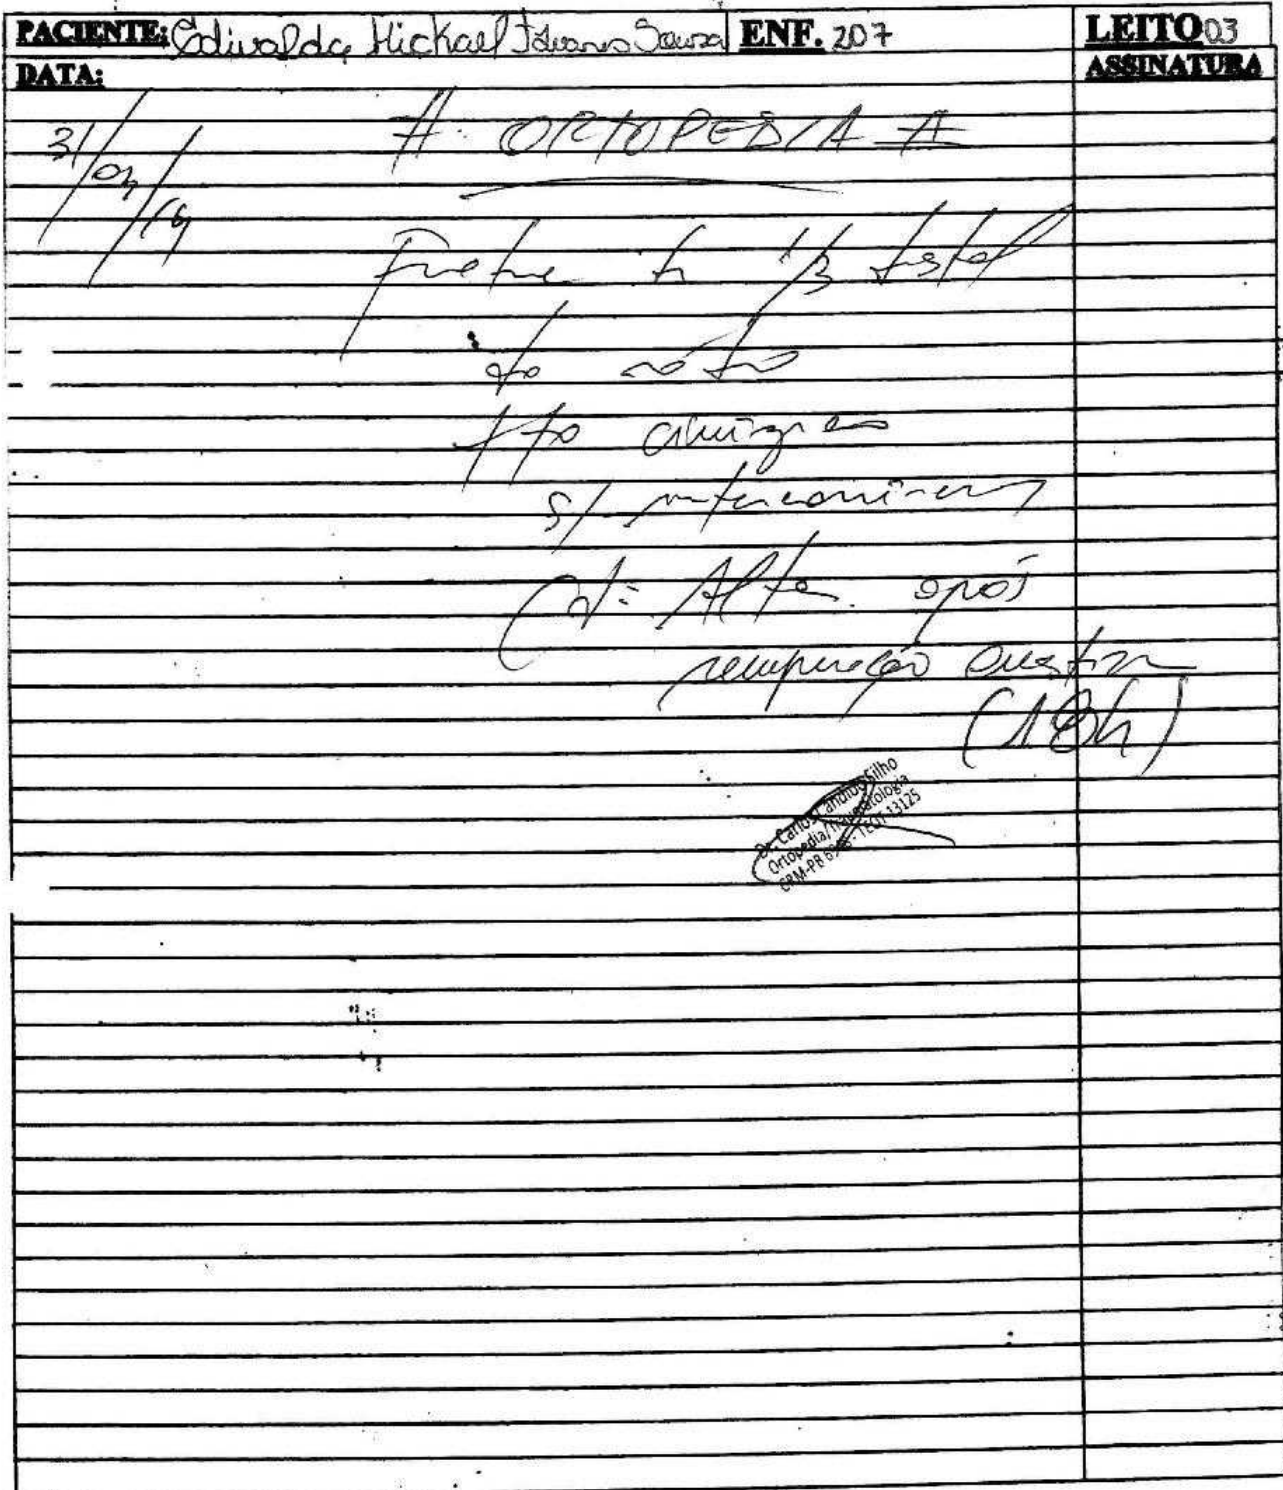 PACIENTE: Edivaldo Mickael Souza ENF. 207 LEITO 03
DATA: ASSINATURA
31/ /19 # ORTOPEDIA #
Fratura 1/3 distal
do rádio
tto cirúrgico
s/ intercorrências
Cd: Alta após
recuperação anestésica
(18h)
Dr. Carlos Candido Filho
Ortopedia/Traumatologia
CRM-PB TEOT 13125